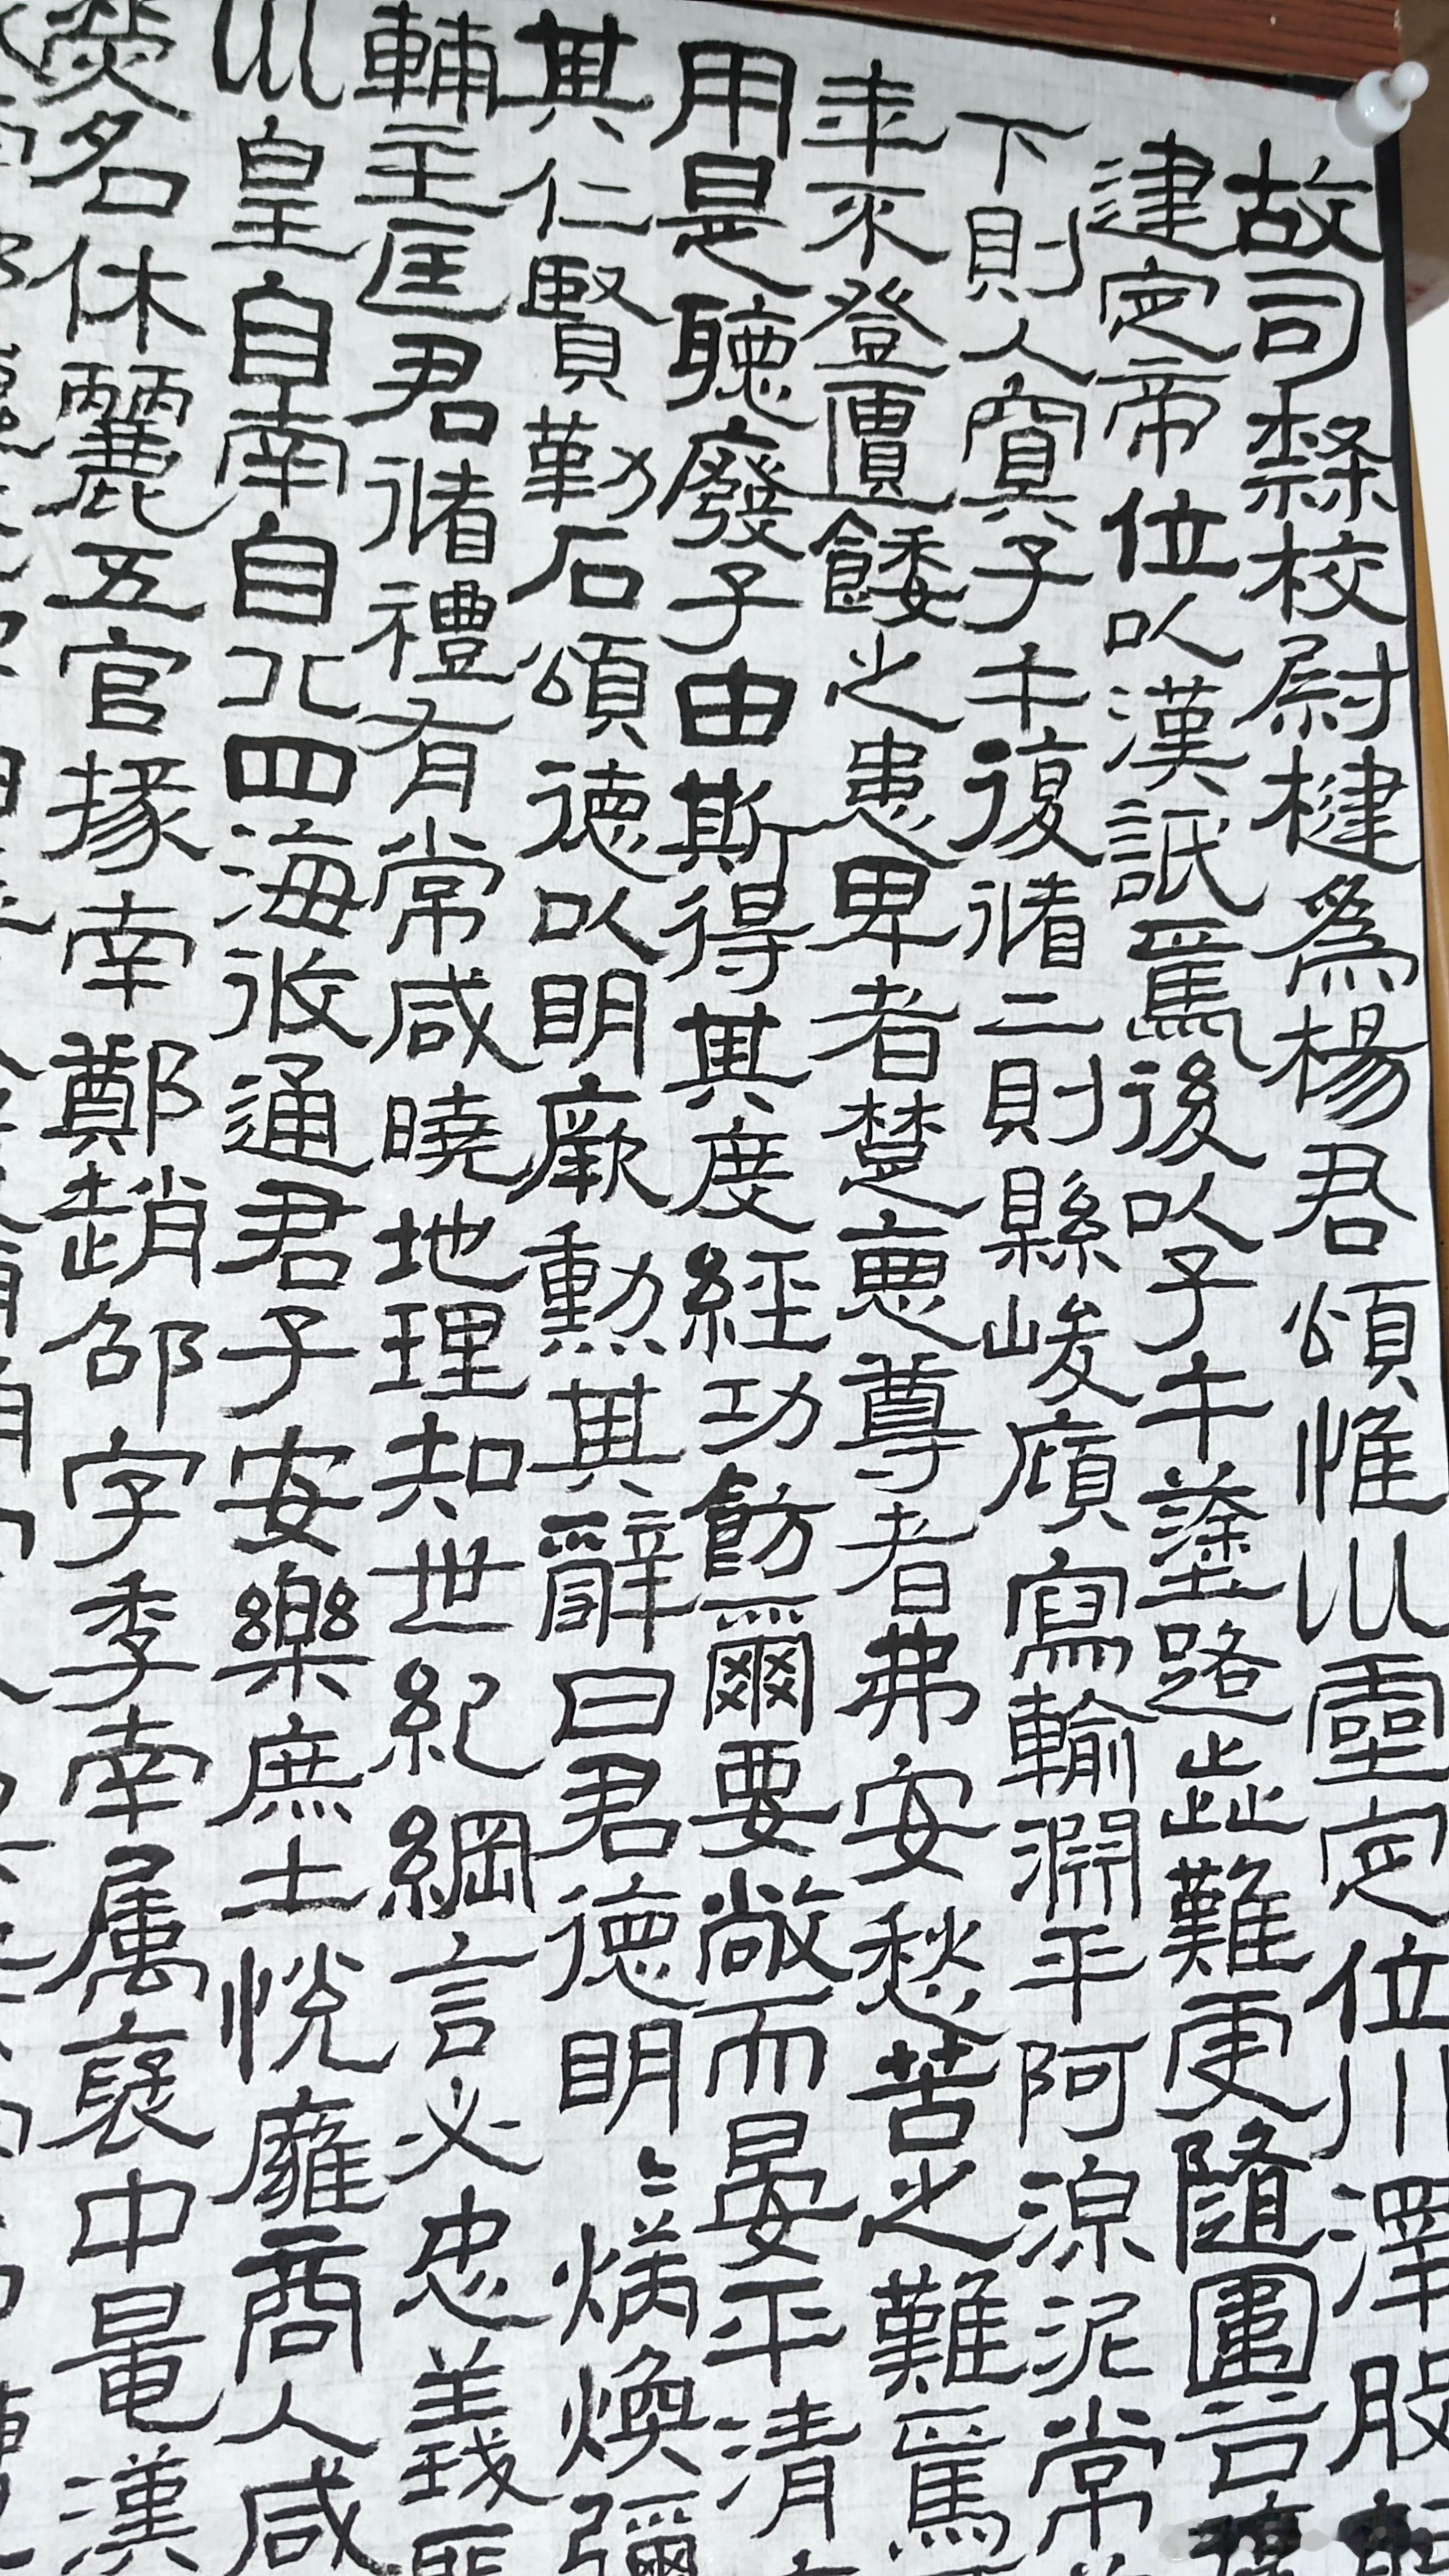 故司隸校尉楗為楊君頌惟巛靈定位川澤股
建定帝位以漢詆焉後以子午塗路歮難更隨圍谷
下則人寘子午復循二則縣峻屓寫輸淵平阿淙泥常
年來登匱餧之患卑者楚惡尊者弗安愁苦之難焉
用是聽廢子由斯得其度經功飭爾要敞而晏平清
其仁賢勒石頌德以明厥勳其辭曰君德明明炳煥彌
輔主匡君循禮有常咸曉地理知世紀綱言必忠義匪
巛皇自南自北四海攸通君子安樂庶士悅雍商人咸
熒名休麗五官掾南鄭趙邵字季南屬褒中鼂漢